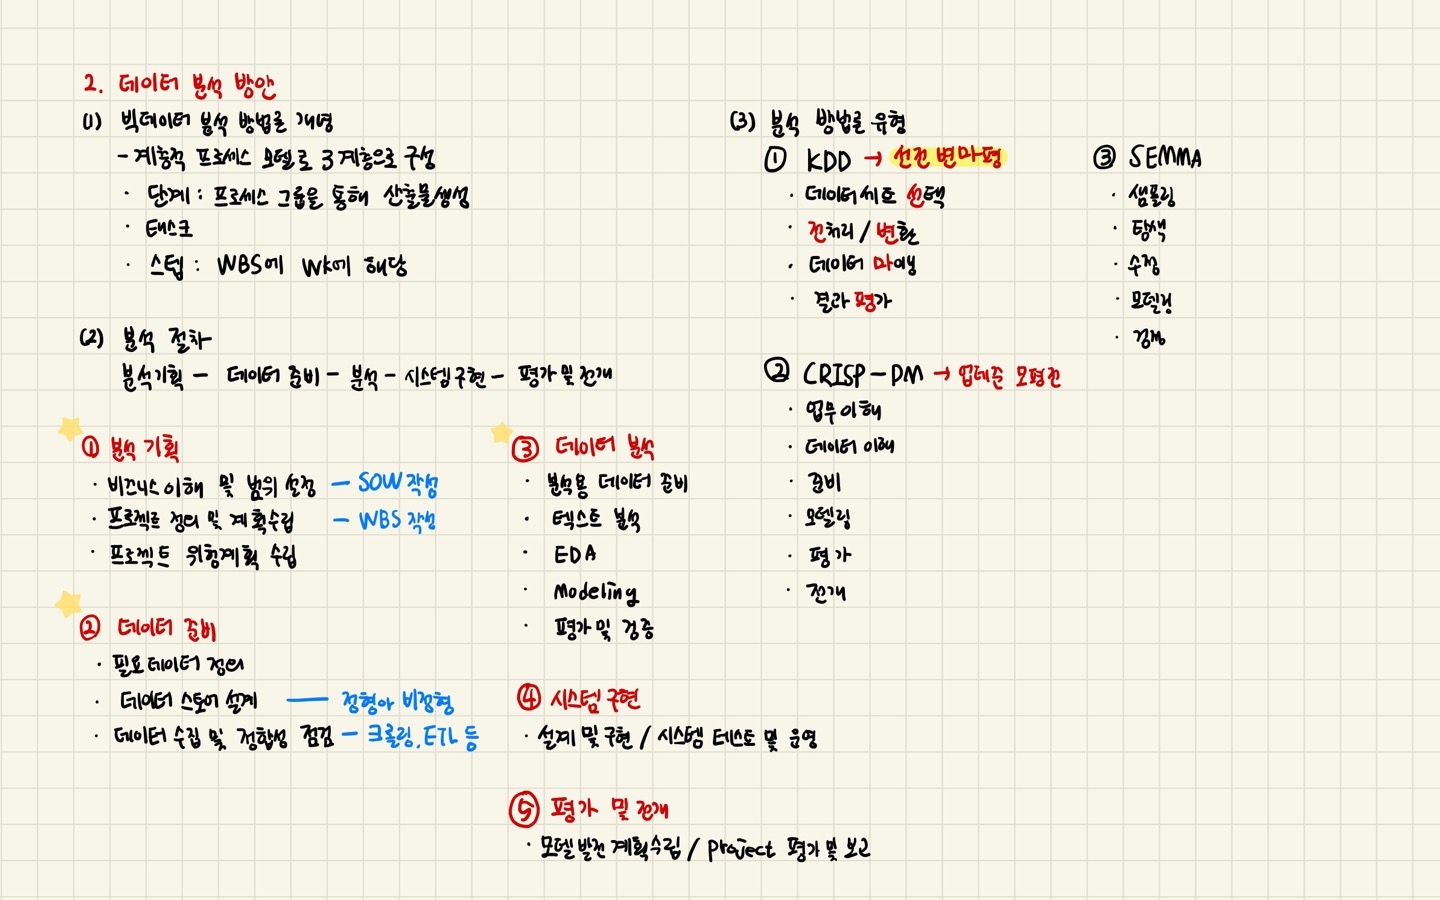 2. 데이터 분석 방안
(1) 빅데이터 분석 방법론 개념
- 계층적 프로세스 모델로 3계층으로 구성
· 단계 : 프로세스 그룹을 통해 산출물생성
· 태스크
· 스텝 : WBS에 WK에 해당
(2) 분석 절차
분석기획 - 데이터 준비 - 분석 - 시스템구현 - 평가 및 전개
① 분석 기획
· 비즈니스 이해 및 범위 설정 - SOW 작성
· 프로젝트 정의 및 계획수립 - WBS 작성
· 프로젝트 위험계획 수립
② 데이터 준비
· 필요데이터 정의
· 데이터 스토어 설계 — 정형아 비정형
· 데이터 수집 및 정합성 점검 - 크롤링, ETL 등
③ 데이터 분석
· 분석용 데이터 준비
· 텍스트 분석
· EDA
· Modeling
· 평가 및 검증
④ 시스템 구현
· 설계 및 구현 / 시스템 테스트 및 운영
⑤ 평가 및 전개
· 모델 발전 계획수립 / project 평가 및 보고
(3) 분석 방법론 유형
① KDD → 선전변마평
· 데이터세트 선택
· 전처리 / 변환
· 데이터 마이닝
· 결과 평가
② CRISP-DM → 업데준 모평전
· 업무이해
· 데이터 이해
· 준비
· 모델링
· 평가
· 전개
③ SEMMA
· 샘플링
· 탐색
· 수정
· 모델링
· 검증